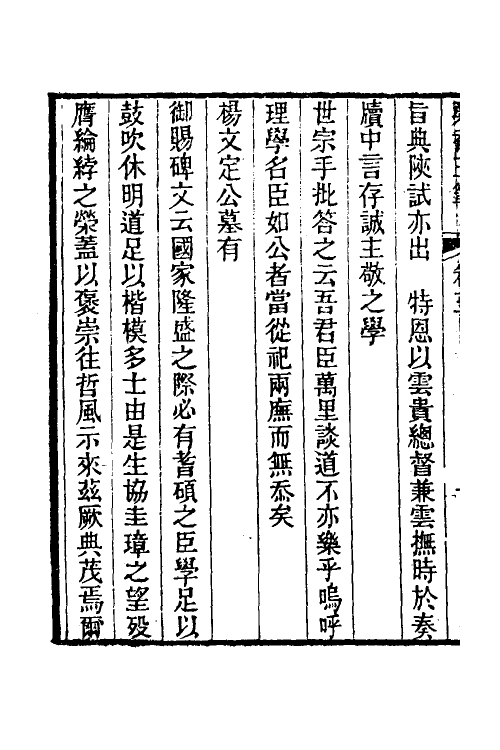 旨典陝試亦出　特恩以雲貴總督兼雲撫時於奏
牘中言存誠主敬之學
世宗手批答之云吾君臣萬里談道不亦樂乎嗚呼
理學名臣如公者當從祀兩廡而無忝矣
楊文定公墓有
御賜碑文云國家隆盛之際必有耆碩之臣學足以
鼓吹休明道足以楷模多士由是生協圭璋之望歿
膺綸綍之榮蓋以褒崇往哲風示來茲厥典茂焉爾